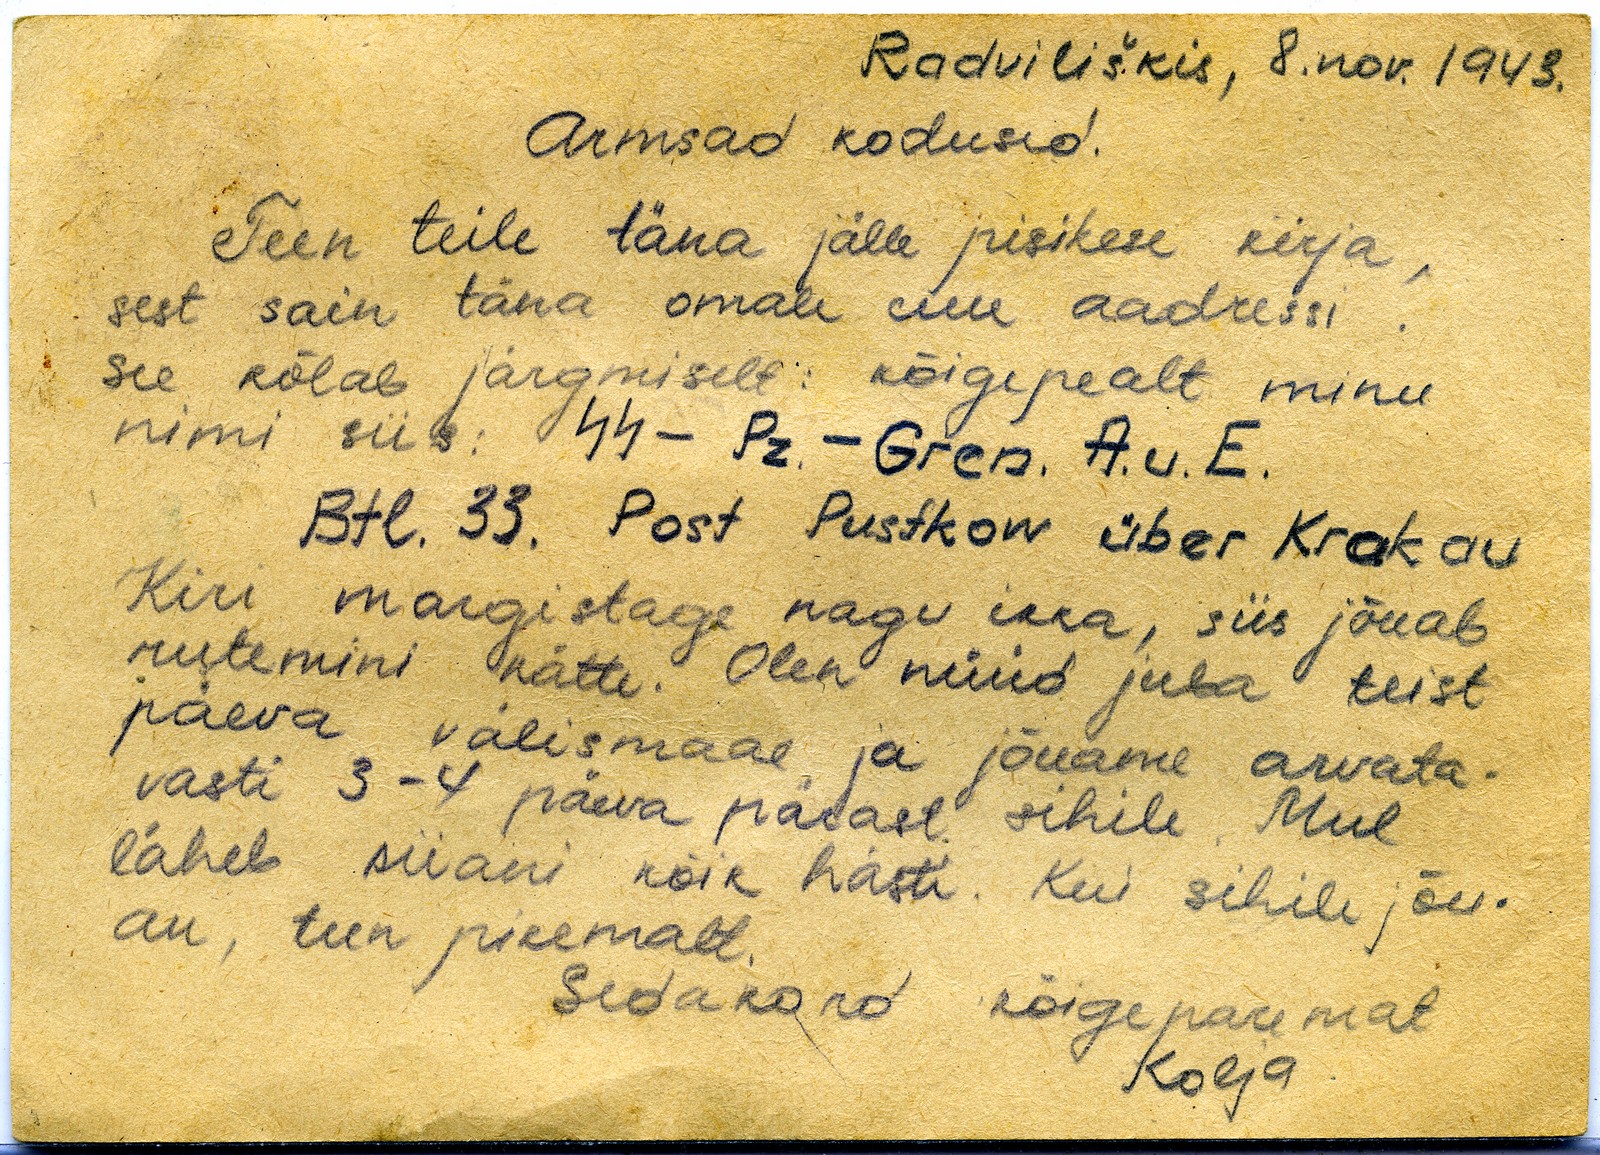 Radviliškis, 8. nov. 1943.
Armsad kodused.
Teen teile täna jälle pisikese kirja,
sest sain täna omale uue aadressi.
See kõlab järgmiselt: kõigepealt minu
nimi siis: SS - Pz. - Gren. A. u. E.
Btl. 33. Post Pustkow über Krakau
Kiri margistage nagu ikka, siis jõuab
rutemini kätte. Olen nüüd juba teist
päeva välismaal ja jõuame arvata-
vasti 3-4 päeva pärast sihile. Mul
läheb siiani kõik hästi. Kui sihile jõu-
an, teen pikemalt.
Sedakord kõigeparemat
Kolja